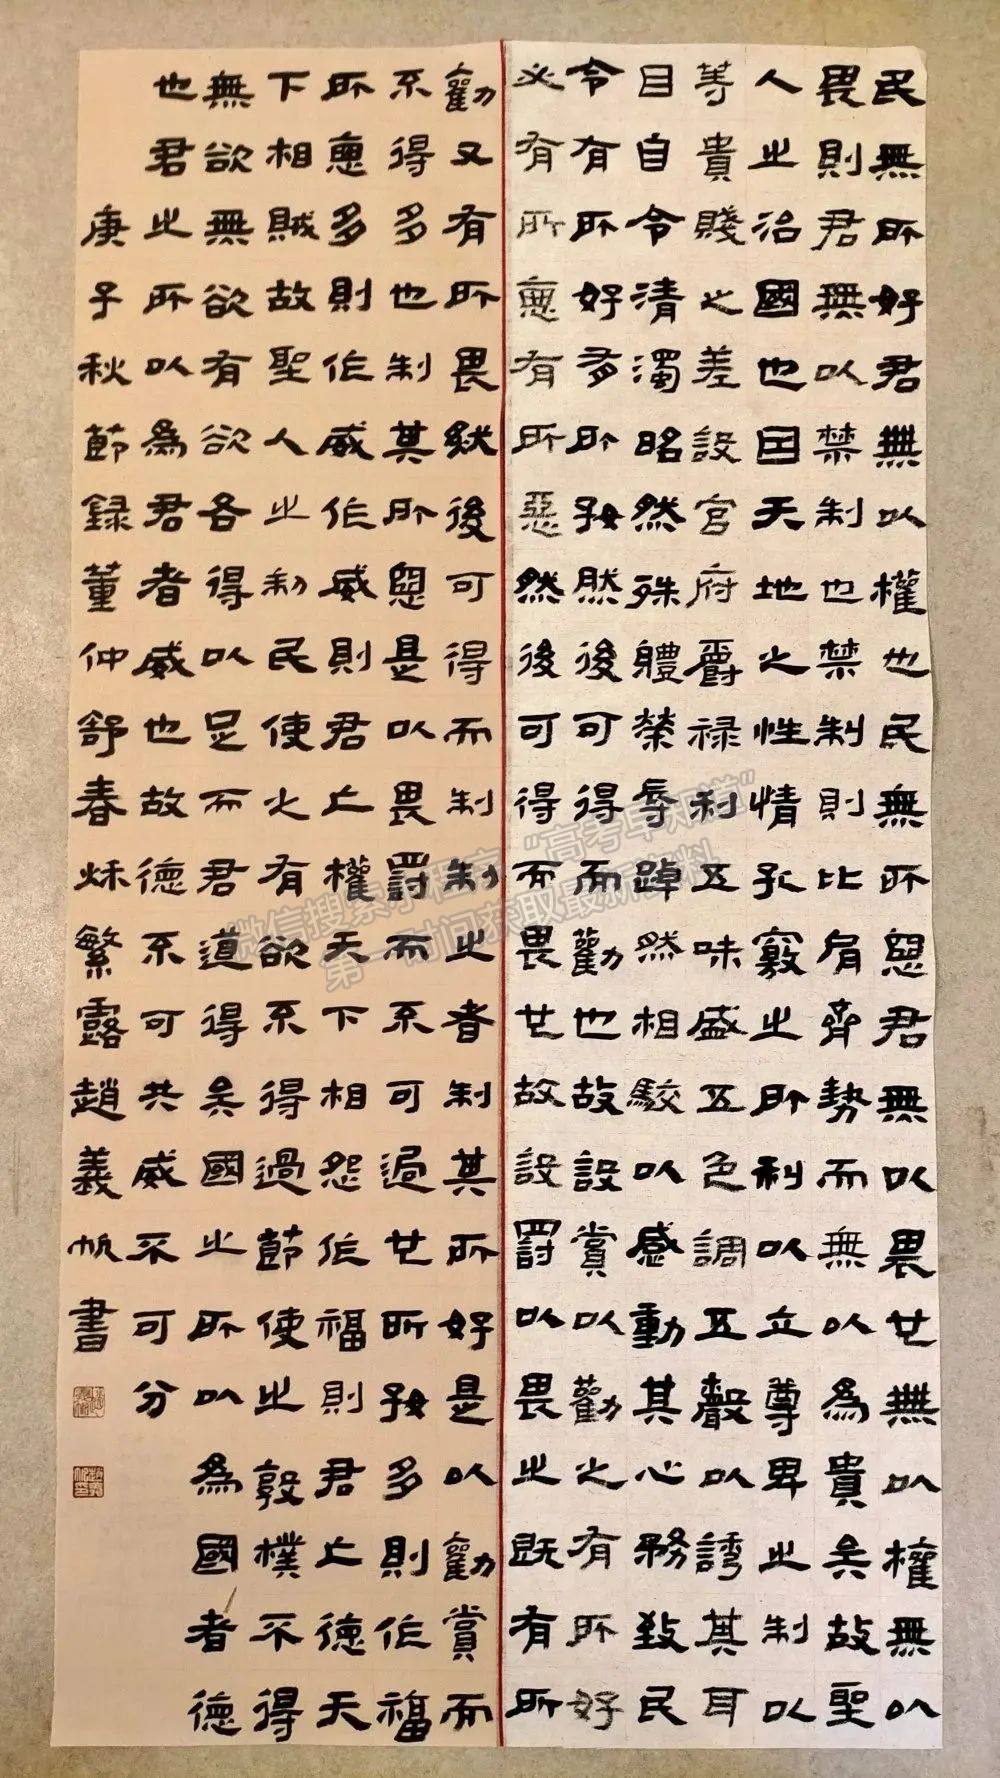 民無所好君無以權也民無所惡君無以畏也無以權無以
畏則君無以禁制也禁制則比肩齊勢而無以為貴矣故聖
人之治國也因天地之性情孔竅之所利以立尊卑之制以
等貴賤之差設官府爵祿利五味盛五色調五聲以誘其耳
目自令清濁昭然殊體榮辱踔然相駮以感動其心務致民
令有所好有所好然後可得而勸也故設賞以勸之有所好
必有所惡有所惡然後可得而畏也故設罰以畏之既有所
勸又有所畏然後可得而制制之者制其所好是以勸賞而
不得多也制其所惡是以畏罰而不可過也所好多則作福
所惡多則作威作威則君亡權天下相怨作福則君亡德天
下相賊故聖人之制民使之有欲不得過節使之敦樸不得
無欲無欲有欲各得以足而君道得矣國之所以為國者德
也君之所以為君者威也故德不可共威不可分
庚子秋節錄董仲舒春秋繁露趙義帆書
微信搜索小程序“高考早知道”
第一时间获取最新资料